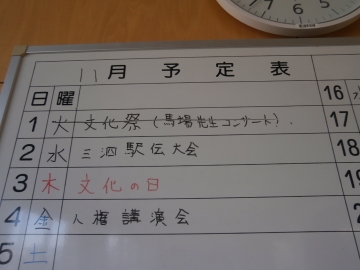 11月予定表
日 曜
1 火 文化祭(馬場先生コンサート).
2 水 三泗駅伝大会
3 木 文化の日
4 金 人権講演会
5 土
16
17
18
19